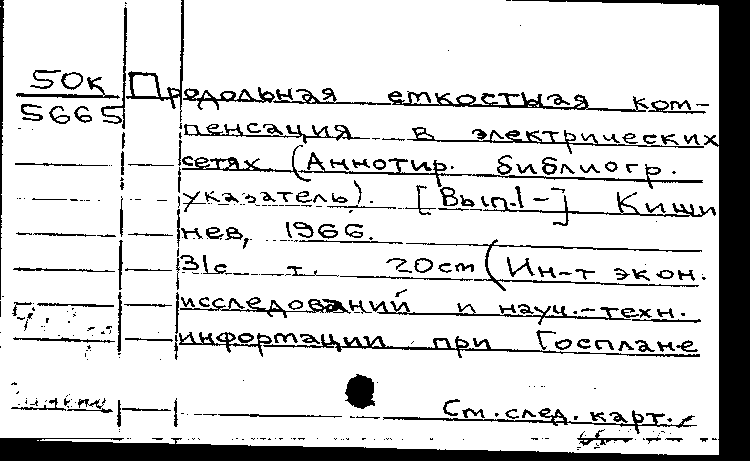 50к Продольная емкостная ком-
5665 пенсация в электрических
сетях (Аннотир. библиогр.
указатель). [Вып.1-] Киши
нев, 1966.
31с т. 20cm (Ин-т экон.
исследований и науч.-техн.
информации при Госплане
См. след. карт.